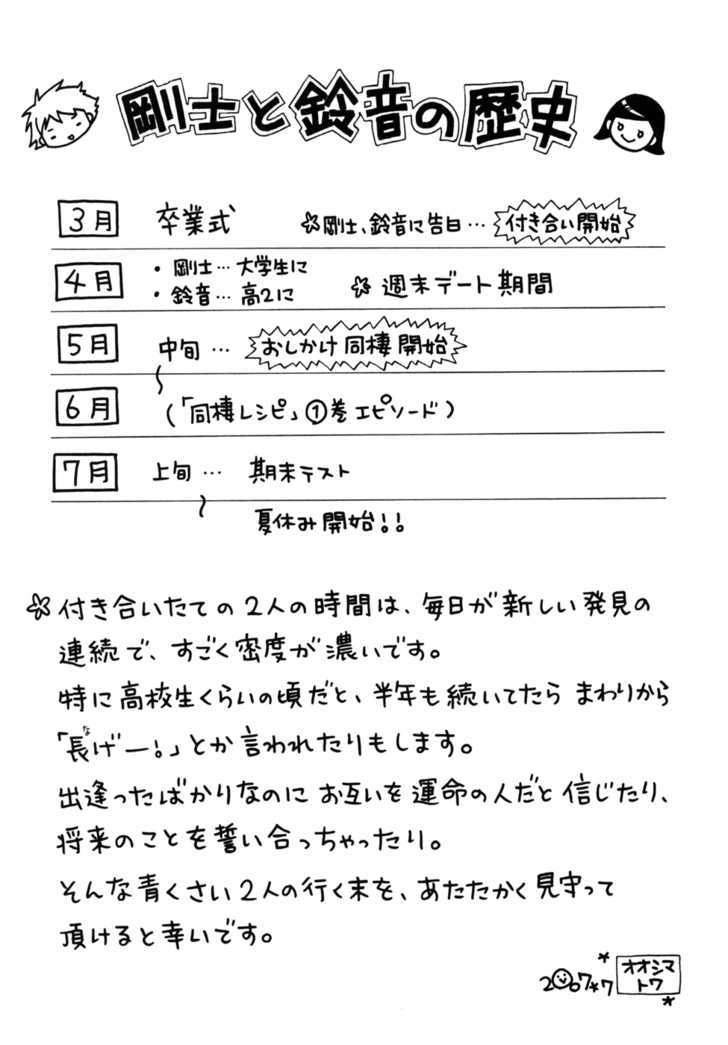 剛士と鈴音の歴史
3月 卒業式 ✿剛士、鈴音に告白… 付き合い開始
4月 ・剛士…大学生に
・鈴音…高2に ✿週末デート期間
5月 中旬 … おしかけ同棲開始
6月 (「同棲レシピ」①巻エピソード)
7月 上旬 … 期末テスト
夏休み開始!!
✿付き合いたての2人の時間は、毎日が新しい発見の
連続で、すごく密度が濃いです。
特に高校生くらいの頃だと、半年も続いてたら まわりから
「長げー!」とか言われたりもします。
出逢ったばかりなのに お互いを運命の人だと信じたり、
将来のことを誓い合っちゃったり。
そんな青くさい2人の行く末を、あたたかく見守って
頂けると幸いです。
2007*7 オオシマトワ